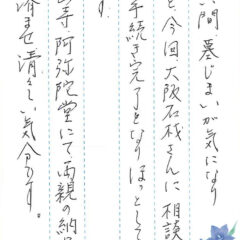 い間墓じまいが気になり
と今回大阪石材さんに相談
手続き完了となりほっとして
す。
寺阿弥陀堂にて両親の納
済ませ清々しい気分です。